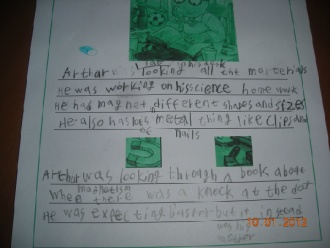 Arthur was looking all the marterials
He was working on hisscience home work
He had magnet, different shapes and sizes
He also has lots metal thing like clips and
of nails
Arthur was looking through a book about
magnatism
when there was a knock at the door
He was expecting buster but it instead
was his
mother
10 01 2012